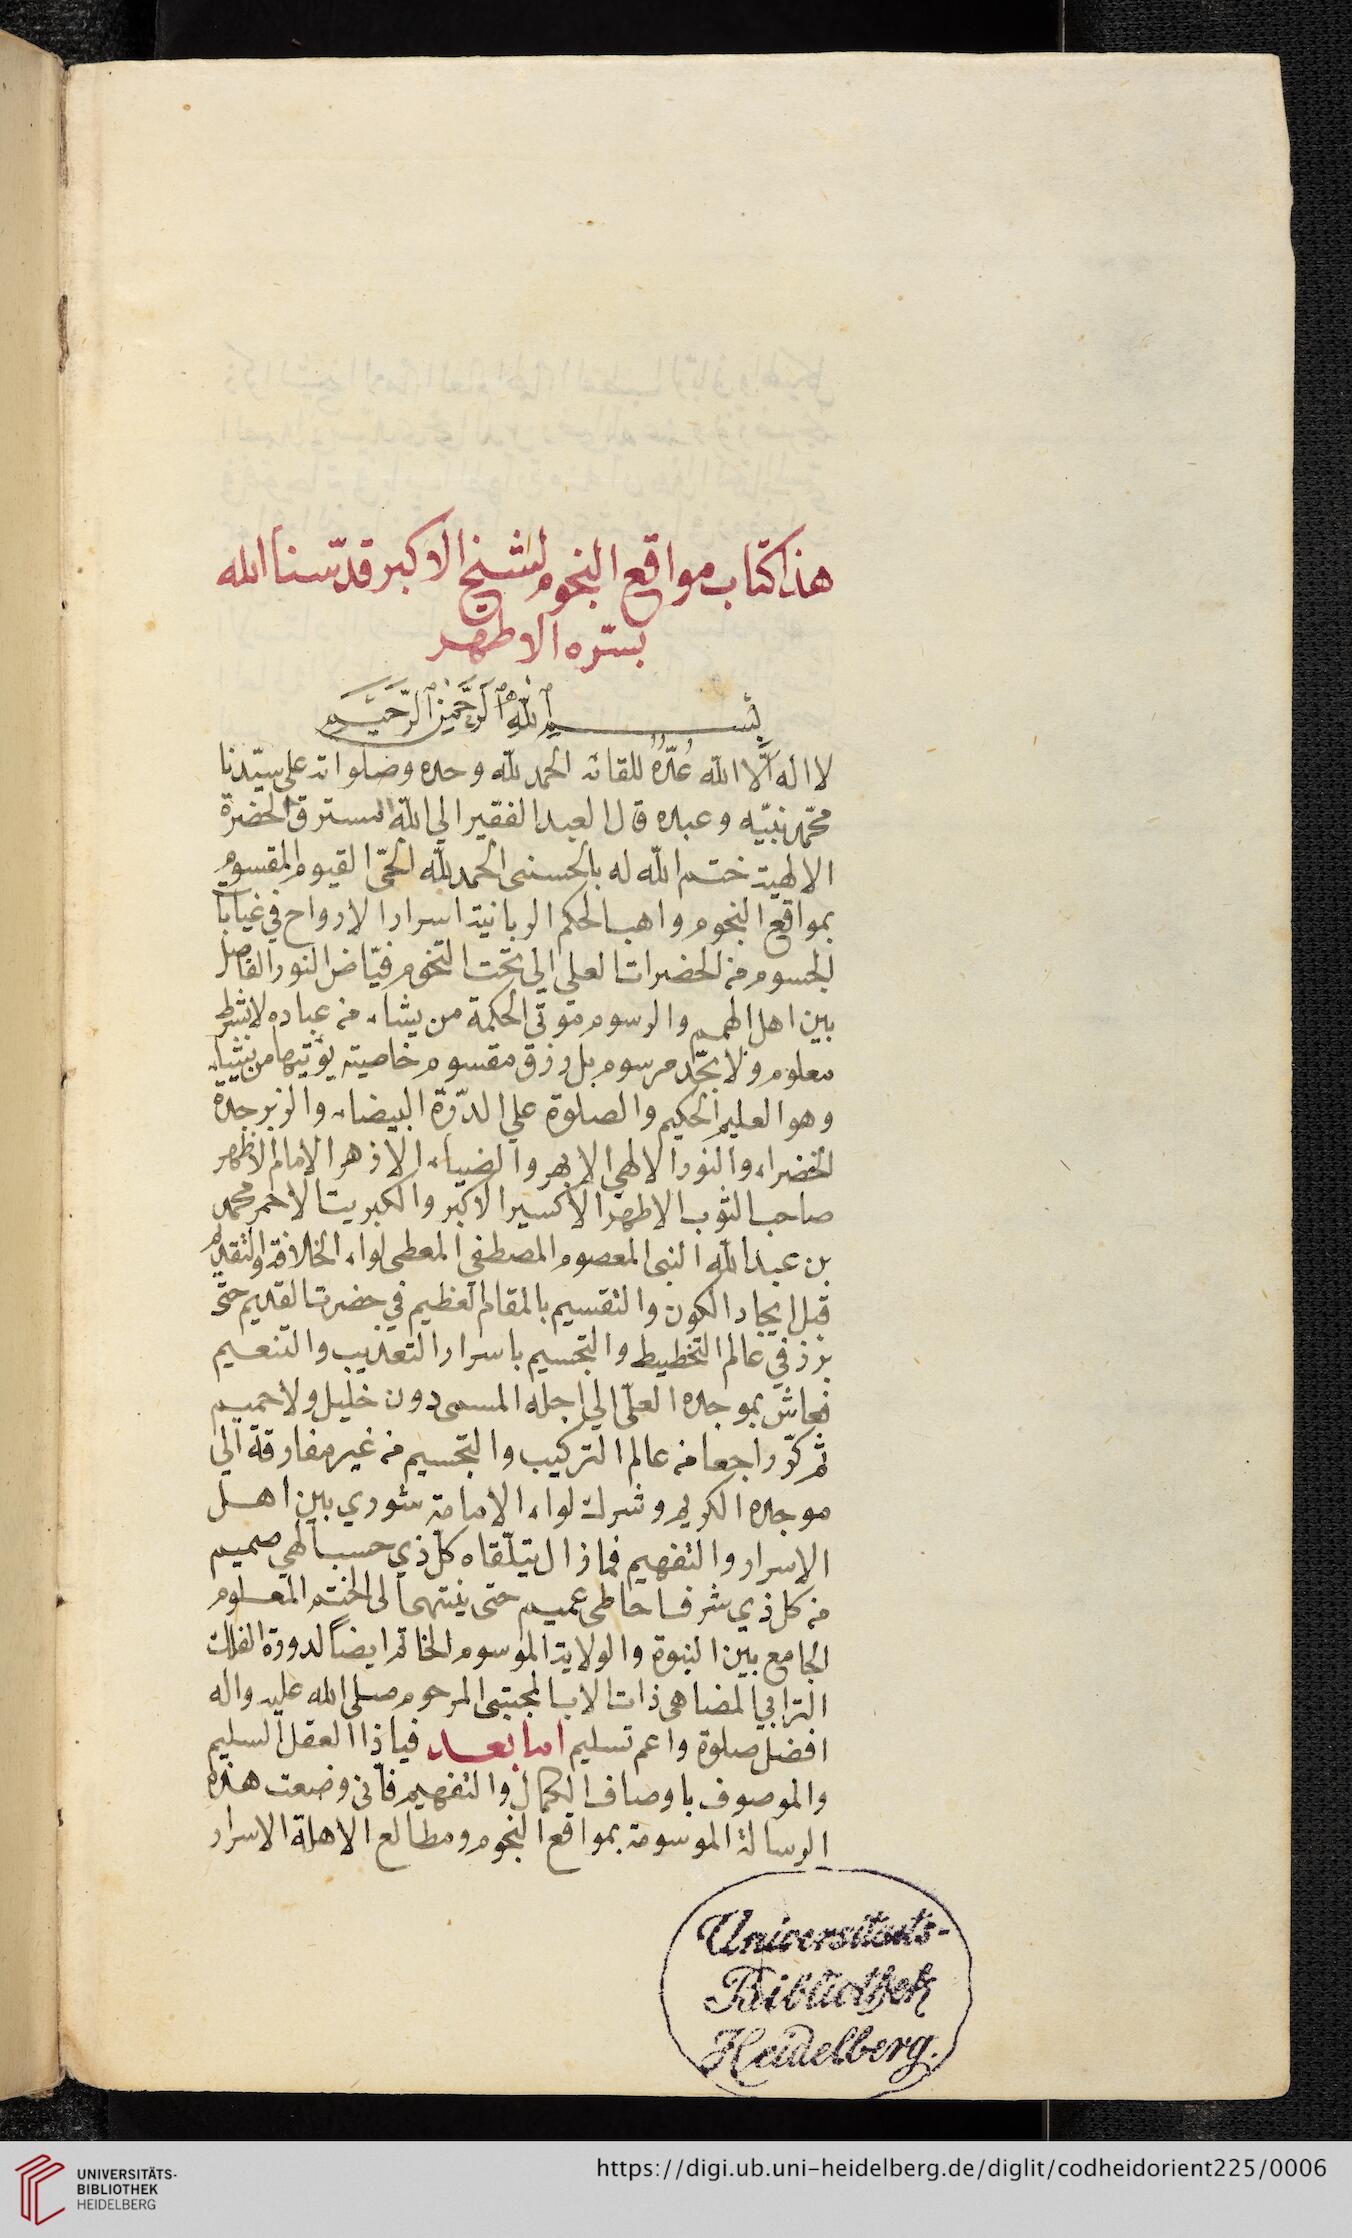 هذا كتاب مواقع النجوم لشيخ الاكبر قدّسنا الله
بسّره الاطهر
بسم الله الرحمن الرحيم
لا اله الّا الله عدّة للقائه الحمد لله وحده وصلواته على سيّدنا
محمّد نبيّه وعبده قال العبد الفقير الي الله المسترق الحضرة
الالهية ختم الله له بالحسنى الحمد لله الحيّ القيوم المقسوم
بمواقع النجوم واهب الحكم الربانية اسرار الارواح في غيابا
الجسوم من الحضرات العلي الي تحت التخوم فيّاض النور الفاصل
بين اهل الهمم والرسوم موتي الحكمة من يشاء من عباده لا بشرط
معلوم ولا بحّد مرسوم بل رزق مقسوم خاصيته يؤتيها من يشاء
وهو العليم الحكيم والصلوة علي الدّرّة البيضاء والزبرجدة
الخضراء والنور الالهي الابهر والضياء الازهر الامام الاظهر
صاحب الثوب الاطهر الاكسير الاكبر والكبريت الاحمر محمد
بن عبد الله النبى المعصوم المصطفي المعطى لواء الخلافة والتقديم
قبل ايجاد الكون والتقسيم بالمقام العظيم في حضرت القديم حتّى
برز في عالم التخطيط والتجسيم باسرار التعذيب والتنعيم
فعاش بموجده العلّى الي اجله المسمى دون خليل ولا حميم
ثم كرّ راجعا من عالم التركيب والتجسيم من غير مفارقة الي
موجده الكريم وترك لواء الامامة شوري بين اهل
الاسرار والتفهيم فما زال يتلقاه كلّ ذي حسب الهي صميم
من كل ذي شرف احاطى عميم حتى ينتهى الى الختم المعلوم
الجامع بين النبوة والولاية الموسوم الخاتم ايضاً لدورة الفلك
الترابي المضاهى ذات الاب المجتبى المرحوم صلى الله عليه واله
افضل صلوة واعم تسليم اما بعد فيا ذا العقل السليم
والموصوف باوصاف الكمال والتفهيم فانى وضعت هذه
الرسالة الموسومة بمواقع النجوم ومطالع الاهلة الاسرار
Universitäts-
Bibliothek
Heidelberg.
UNIVERSITÄTS-
BIBLIOTHEK
HEIDELBERG
https://digi.ub.uni-heidelberg.de/diglit/codheidorient225/0006